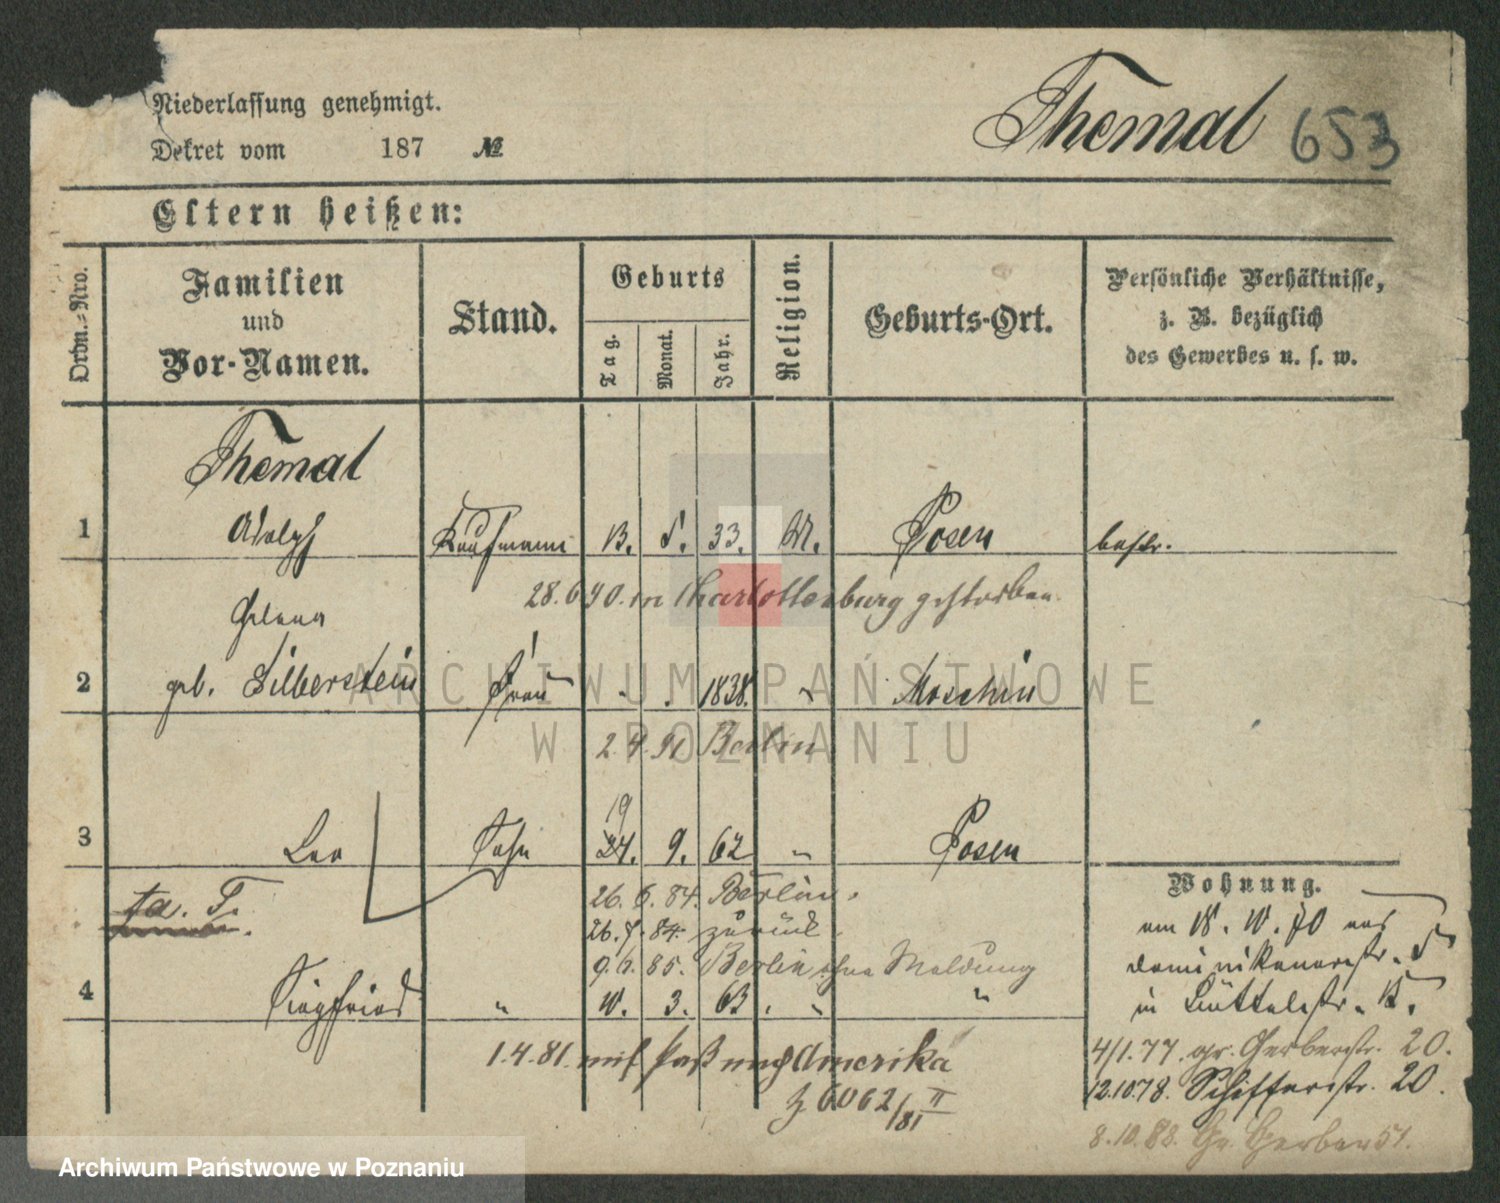 Niederlassung genehmigt.
Dekret vom 187 №
Themal 653
Eltern heißen:
Ordn.-Nro.
Familien
und
Vor-Namen.
Stand.
Geburts
Tag.
Monat.
Jahr.
Religion.
Geburts-Ort.
Persönliche Verhältnisse,
z. B. bezüglich
des Gewerbes u. s. w.
Themal
1 Adolph Kaufmann 33. Posen bestr.
28.6 90. in Charlottenburg gestorben.
Helena
2 geb. Silberstein Frau 1838. Moschin
2.4.91 Berlin
19
3 Leo Sohn 9. 62 " Posen
26.6.84. Berlin.
26.7.84 zurück.
9.6.85. Berlin ohne Meldung
4 Siegfried " 3. 63 " "
1.4.81. mit Paß nach Amerika
6062/81 II
Wohnung.
am aus
Dominikanerstr.
in Büttelstr.
4/1.77. gr. Gerberstr. 20.
12.10.78. Schifferstr. 20.
8.10.83. Gr. Gerber 51.
ARCHIWUM PAŃSTWOWE
W POZNANIU
Archiwum Państwowe w Poznaniu